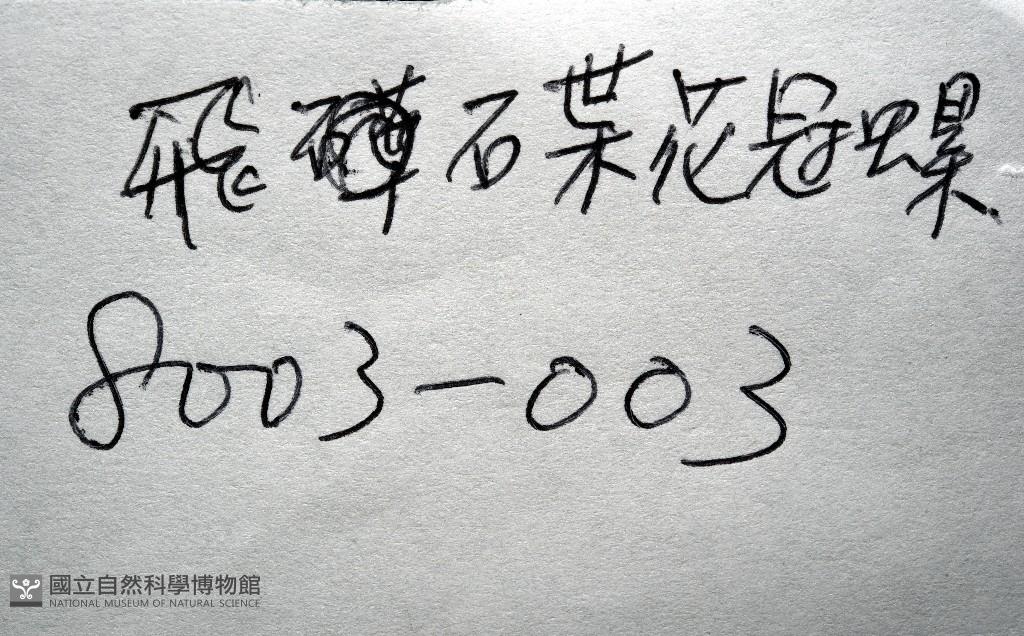 飛碟花冠螺
8003-003
國立自然科學博物館
NATIONAL MUSEUM OF NATURAL SCIENCE